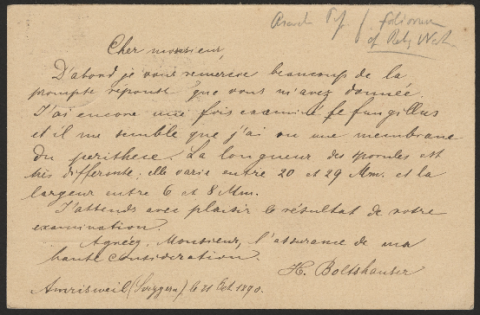 Cher monsieur,
D'abord je vous remercie beaucoup de la
prompte reponse que vous m'avez donnée.
J'ai encore une fois examiné le fungillus
et il me semble que j'ai vu une membrane
du perithece. La longueur des spores est
très differente, elle varie entre 20 et 29 Mm. et la
largeur entre 6 et 8 Mm.
J'attends avec plaisir le résultat de votre
examination.
Agréez, Monsieur, l'assurance de ma
haute consideration.
H. Boltshauser
Amrisweil le 21 Oct. 1890.